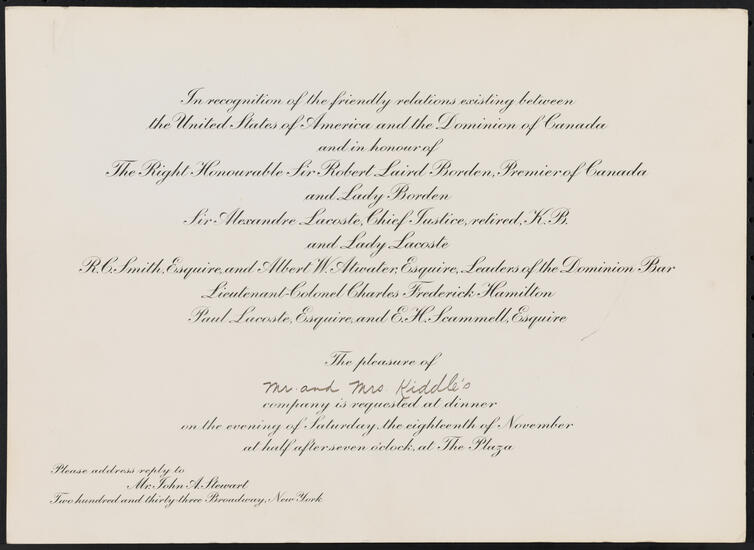 In recognition of the friendly relations existing between
the United States of America and the Dominion of Canada
and in honour of
The Right Honourable Sir Robert Laird Borden, Premier of Canada
and Lady Borden
Sir Alexandre Lacoste, Chief Justice, retired, K.B.
and Lady Lacoste
R.C. Smith, Esquire, and Albert W. Atwater, Esquire, Leaders of the Dominion Bar
Lieutenant-Colonel Charles Frederick Hamilton
Paul Lacoste, Esquire, and E.H. Scammell, Esquire
The pleasure of
Mr. and Mrs. Kiddle's
company is requested at dinner
on the evening of Saturday, the eighteenth of November
at half after seven o'clock, at The Plaza
Please address reply to
Mr. John A. Stewart
Two hundred and thirty-three Broadway, New York